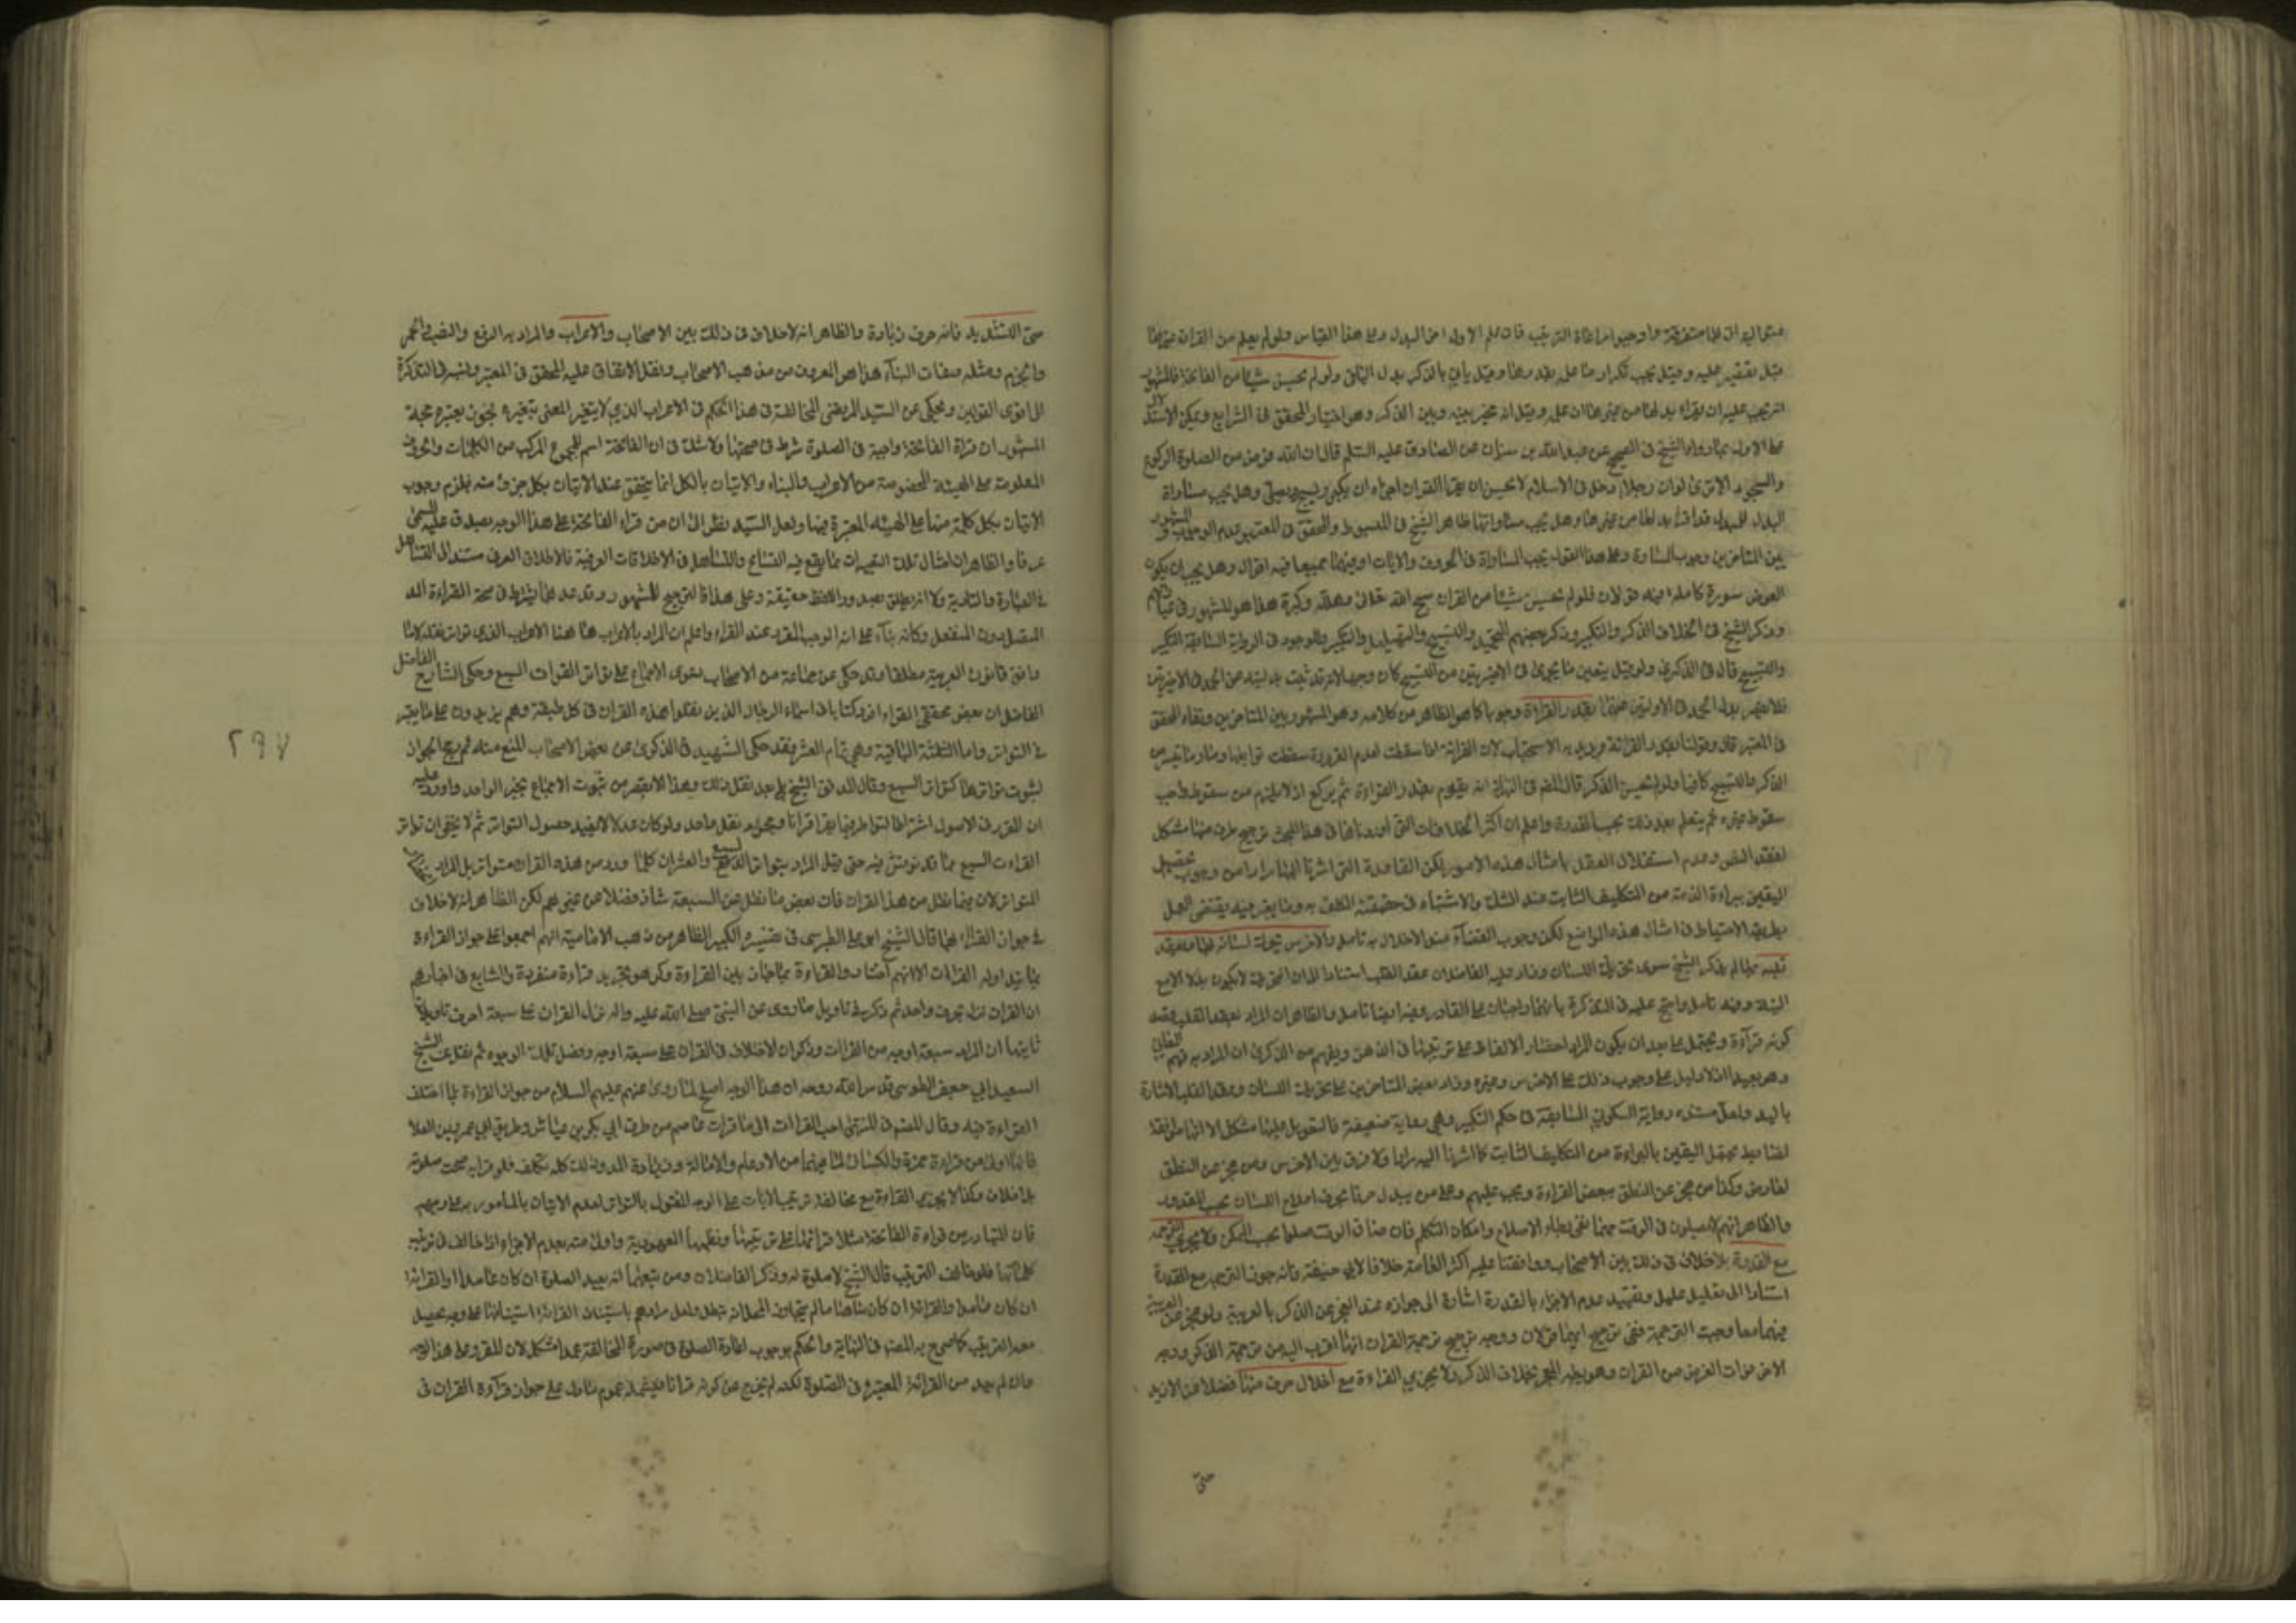 متواليه اتى بها متفرقة واوجبوا مراعاة الترتيب فان علم الاول اخر البدل وعلى هذا القياس ولو لم يعلم من القران غيرها
قيل يقتصر عليه وقيل يجب تكرار ما علم بقدرها وقيل يأتي بالذكر بدل الباقي ولو لم يحسن شيئا من الفاتحة فالمشهور
انه يجب عليه ان يقراء بدلها من غيرها ان علم وقيل انه مخير بينه وبين الذكر وهو اختيار المحقق في الشرايع ويمكن الاستدلال
على الاول بما رواه الشيخ في الصحيح عن عبد الله بن سنان عن الصادق عليه السلم قال ان الله فرض من الصلوة الركوع
والسجود الا ترى لو ان رجلا دخل في الاسلام لا يحسن ان يقرا القران اجزاه ان يكبر ويسبح ويصلي وهل يجب مساواة
البدل للمبدل وهل يجب مساواتها ظاهر الشيخ في المبسوط والمحقق في المعتبر عدم الوجوب والمشهور
بين المتاخرين وجوب المساوة وعلى هذا القول يجب المساواة في الحروف والايات او فيهما جميعا فيه اقوال وهل يجب ان يكون
العوض سورة كاملة فيه قولان فلو لم يحسن شيئا من القران سبح الله تعالى وهلله وكبره هذا هو المشهور في عباراتهم
وذكر الشيخ في الخلاف الذكر والتكبير وذكر بعضهم التحميد والتسبيح والتهليل والتكبير والموجود في الرواية السابقة التكبير
والتسبيح قال في الذكرى ولو قيل يتعين ما يجزى في الاخيرتين من التسبيح كان وجها لانه قد ثبت بدليته عن الحمد في الاخيرتين
فلا يقصر بدل الحمد في الاولتين عنهما بقدر القراءة وجوبا كما هو الظاهر من كلامه وهو المشهور بين المتاخرين ونفاه المحقق
في المعتبر قال وقولنا بقدر القرائة نريد به الاستحباب لان القرائة اذا سقطت لعدم القدرة سقطت توابعها وصار ما تيسر من
الذكر والتسبيح كافيا ولو لم يحسن الذكر قال المصنف في النهاية انه يقوم بقدر القراءة ثم يركع اذ لا يلزم من سقوط واجب
سقوط غيره ثم يتعلم بعد ذلك بحسب القدرة واعلم ان اكثر الخلافات التي اوردناها في هذا المبحث ترجيح طرف منها مشكل
لفقد النص وعدم استقلال العقل بامثال هذه الامور لكن القاعدة التي اشرنا اليها مرارا من وجوب تحصيل
اليقين ببراءة الذمة من التكليف الثابت عند الشك والاشتباه في حقيقة المكلف به وما يعتبر فيه يقتضي العمل
بطريقة الاحتياط في امثال هذه المواضع لكن وجوب القضاء عند الاخلال به تامل والاخرس يحرك لسانه بها ويعقد
قلبه بها لم يذكر الشيخ سوى تحريك اللسان وزاد عليه الفاضلان عقد القلب استنادا الى ان التحريك لا يكون بدلا الا مع
النية وفيه تامل واحتج عليه في التذكرة بانهما واجبان على القادر وفيه ايضا تامل والظاهر ان المراد بعقد القلب قصد
كونه قراءة ويحتمل على بعد ان يكون المراد احضار الالفاظ على ترتيبها في الذهن ويفهم من الذكرى ان المراد به فهم المعاني
وهو بعيد اذ لا دليل على وجوب ذلك على الاخرس وغيره وزاد بعض المتاخرين على تحريك اللسان وعقد القلب الاشارة
باليد ولعل مستنده رواية السكوني السابقة في حكم التكبير وهي رواية ضعيفة فالتعويل عليها مشكل الا انها موافقة
لما يحصل اليقين بالبراءة من التكليف الثابت كما اشرنا اليه مرارا ولا فرق بين الاخرس ومن عجز عن النطق
لعارض وكذا من عجز عن النطق ببعض القراءة ويجب عليهم وعلى من يبدل حرفا بحرف اصلاح اللسان بحسب المقدور
والظاهر انهم لا يصلون في الوقت مهما بقى رجاء الاصلاح وامكان التكلم فان ضاق الوقت صلوا بحسب الممكن ولا يجزي الترجمة
مع القدرة بلا خلاف في ذلك بين الاصحاب ووافقنا عليه اكثر العامة خلافا لابي حنيفة فانه جوز الترجمة مع القدرة
استنادا الى تعليل عليل وتقييد عدم الاجزاء بالقدرة اشارة الى جوازه عند العجز عن الذكر بالعربية ولو عجز عن العربية
فيهما معا وجبت الترجمة ففي ترجيح ايهما قولان ووجه ترجيح ترجمة القران انها اقرب اليه من ترجمة الذكر ووجه
الاخر فوات الغرض من القران وهو نظمه المعجز بخلاف الذكر ولا يجزي القراءة مع اخلال حرف منها فضلا عن الازيد
حتى
حتى التشديد فانه حرف زيادة والظاهر انه لا خلاف في ذلك بين الاصحاب والاعراب والمراد به الرفع والنصب والجر
والجزم ومثله صفات البناء هذا هو المعروف من مذهب الاصحاب ونقل الاتفاق عليه المحقق في المعتبر ونسبه في التذكرة
الى اقوى القولين ويحكى عن السيد المرتضى المخالفة في هذا الحكم في الاعراب الذي لا يتغير المعنى بتغيره حجة
المشهور ان قراة الفاتحة واجبة في الصلوة شرط في صحتها ولا شك في ان الفاتحة اسم للمجموع المركب من الكلمات والحروف
المعلومة على الهيئة المخصوصة من الاعراب والبناء والاتيان بالكل انما يتحقق عند الاتيان بكل جزء منه فيلزم وجوب
الاتيان بكل كلمة منها على الهيئة المعتبرة فيها ولعل السيد نظر الى ان من قراء الفاتحة على هذا الوجه يصدق عليه المسمى
عرفا والظاهر ان امثال تلك التغييرات مما يقع فيه التسامح والتساهل في الاطلاقات العرفية فالاطلاق العرفي مستند الى التساهل
في العبارة والتادية لا انه يطلق عليه اللفظ حقيقة وعلى هذا فالترجيح للمشهور وقد عد مما يشترط في صحة القراءة المد
المتصل دون المنفصل وكانه بناء على انه الوجه المقرر عند القراء واعلم ان المراد بالاعراب هنا الاعراب الذي تواتر نقله لا ما
وافق قانون العربية مطلقا وقد حكى عن جماعة من الاصحاب دعوى الاجماع على تواتر القراءات السبع وحكى الشارح الفاضل
الفاضل ان بعض محققي القراء افرد كتابا في اسماء الرجال الذين نقلوا هذه القران في كل طبقة وهم يزيدون على ما يعتبر
في التواتر واما الثلثة الباقية وهي تمام العشر فقد حكى الشهيد في الذكرى عن بعض الاصحاب المنع منه ثم رجح الجواز
لثبوت تواترها كتواتر السبع وقال المدقق الشيخ علي بعد نقل ذلك وهذا لا يقصر من ثبوت الاجماع بخبر الواحد واورد عليه
ان المقرر في الاصول اشتراط التواطر فيما يقرا قرانا ومجرد نقل واحد ولو كان عدلا لا يفيد حصول التواتر ثم لا يخفى ان تواتر
القراءت السبع مما قد نوقش فيه حتى قيل المراد بتواتر السبع والعشر ان كلما ورد من هذه القران متواتر بل المراد انحصار
المتواتر الان فيما نقل من هذا القران فان بعض ما نقل عن السبعة شاذ فضلا عن غيرهم لكن الظاهر انه لا خلاف
في جواز القراءة بها قال الشيخ ابو علي الطبرسي في تفسيره الكبير الظاهر من مذهب الامامية انهم اجمعوا على جواز القراءة
بما يتداوله القراءات الا انهم اختاروا القراءة بما جاز بين القراءة وكرهوا تجريد قراءة منفردة والشايع في اخبارهم
ان القران نزل بحرف واحد ثم ذكر في تاويل ما روى عن النبي صلى الله عليه واله نزل القران على سبعة احرف تاويلات
ثانيها ان المراد سبعة اوجه من القراات وذكر ان الاختلاف في القران على سبعة اوجه وفصل تلك الوجوه ثم نقل عن الشيخ
السعيد ابي جعفر الطوسي قدس الله روحه ان هذا الوجه اصلح لما روى عنهم عليهم السلام من جواز القراءة بما اختلف
القراءة فيه وقال المصنف في المنتهى احب القراات الى ما قرات عاصم من طريق ابي بكر بن عياش وطريق ابي عمر بن العلا
فانها اولى من قراءة حمزة والكسائي لما فيهما من الادغام والامالة وزيادة المد وذلك كله تكلف فلو قرا به صحت صلوته
بلا خلاف وكذا لا يجزي القراءة مع مخالفة ترتيب الايات على الوجه المنقول بالتواتر لعدم الاتيان بالمامور به على وجهه
فان المتبادر من قراءة الفاتحة مثلا قرائتها على ترتيبها ونظمها المعهودة واولى منه بعدم الاجزاء اذا خالف في ترتيب
كلماتها فلو خالف الترتيب قال الشيخ لا صلوة له وذكر الفاضلان ومن تبعهما انه يعيد الصلوة ان كان عامدا او القرائة
ان كان ناسيا ما لم يتجاوز المحل لانه تبطل ولعل مرادهم باستيناف القرائة استينافها على وجه يحصل
معه الترتيب كما صرح به المصنف في النهاية والحكم بوجوب اعادة الصلوة في صورة المخالفة عمدا مشكل لان المقرو على هذا الوجه
وان لم يعد من القرائة المعتبرة في الصلوة لكنه لم يخرج عن كونه قرانا فيشمله عموم ما دل على جواز قراءة القران في
٢٩٧